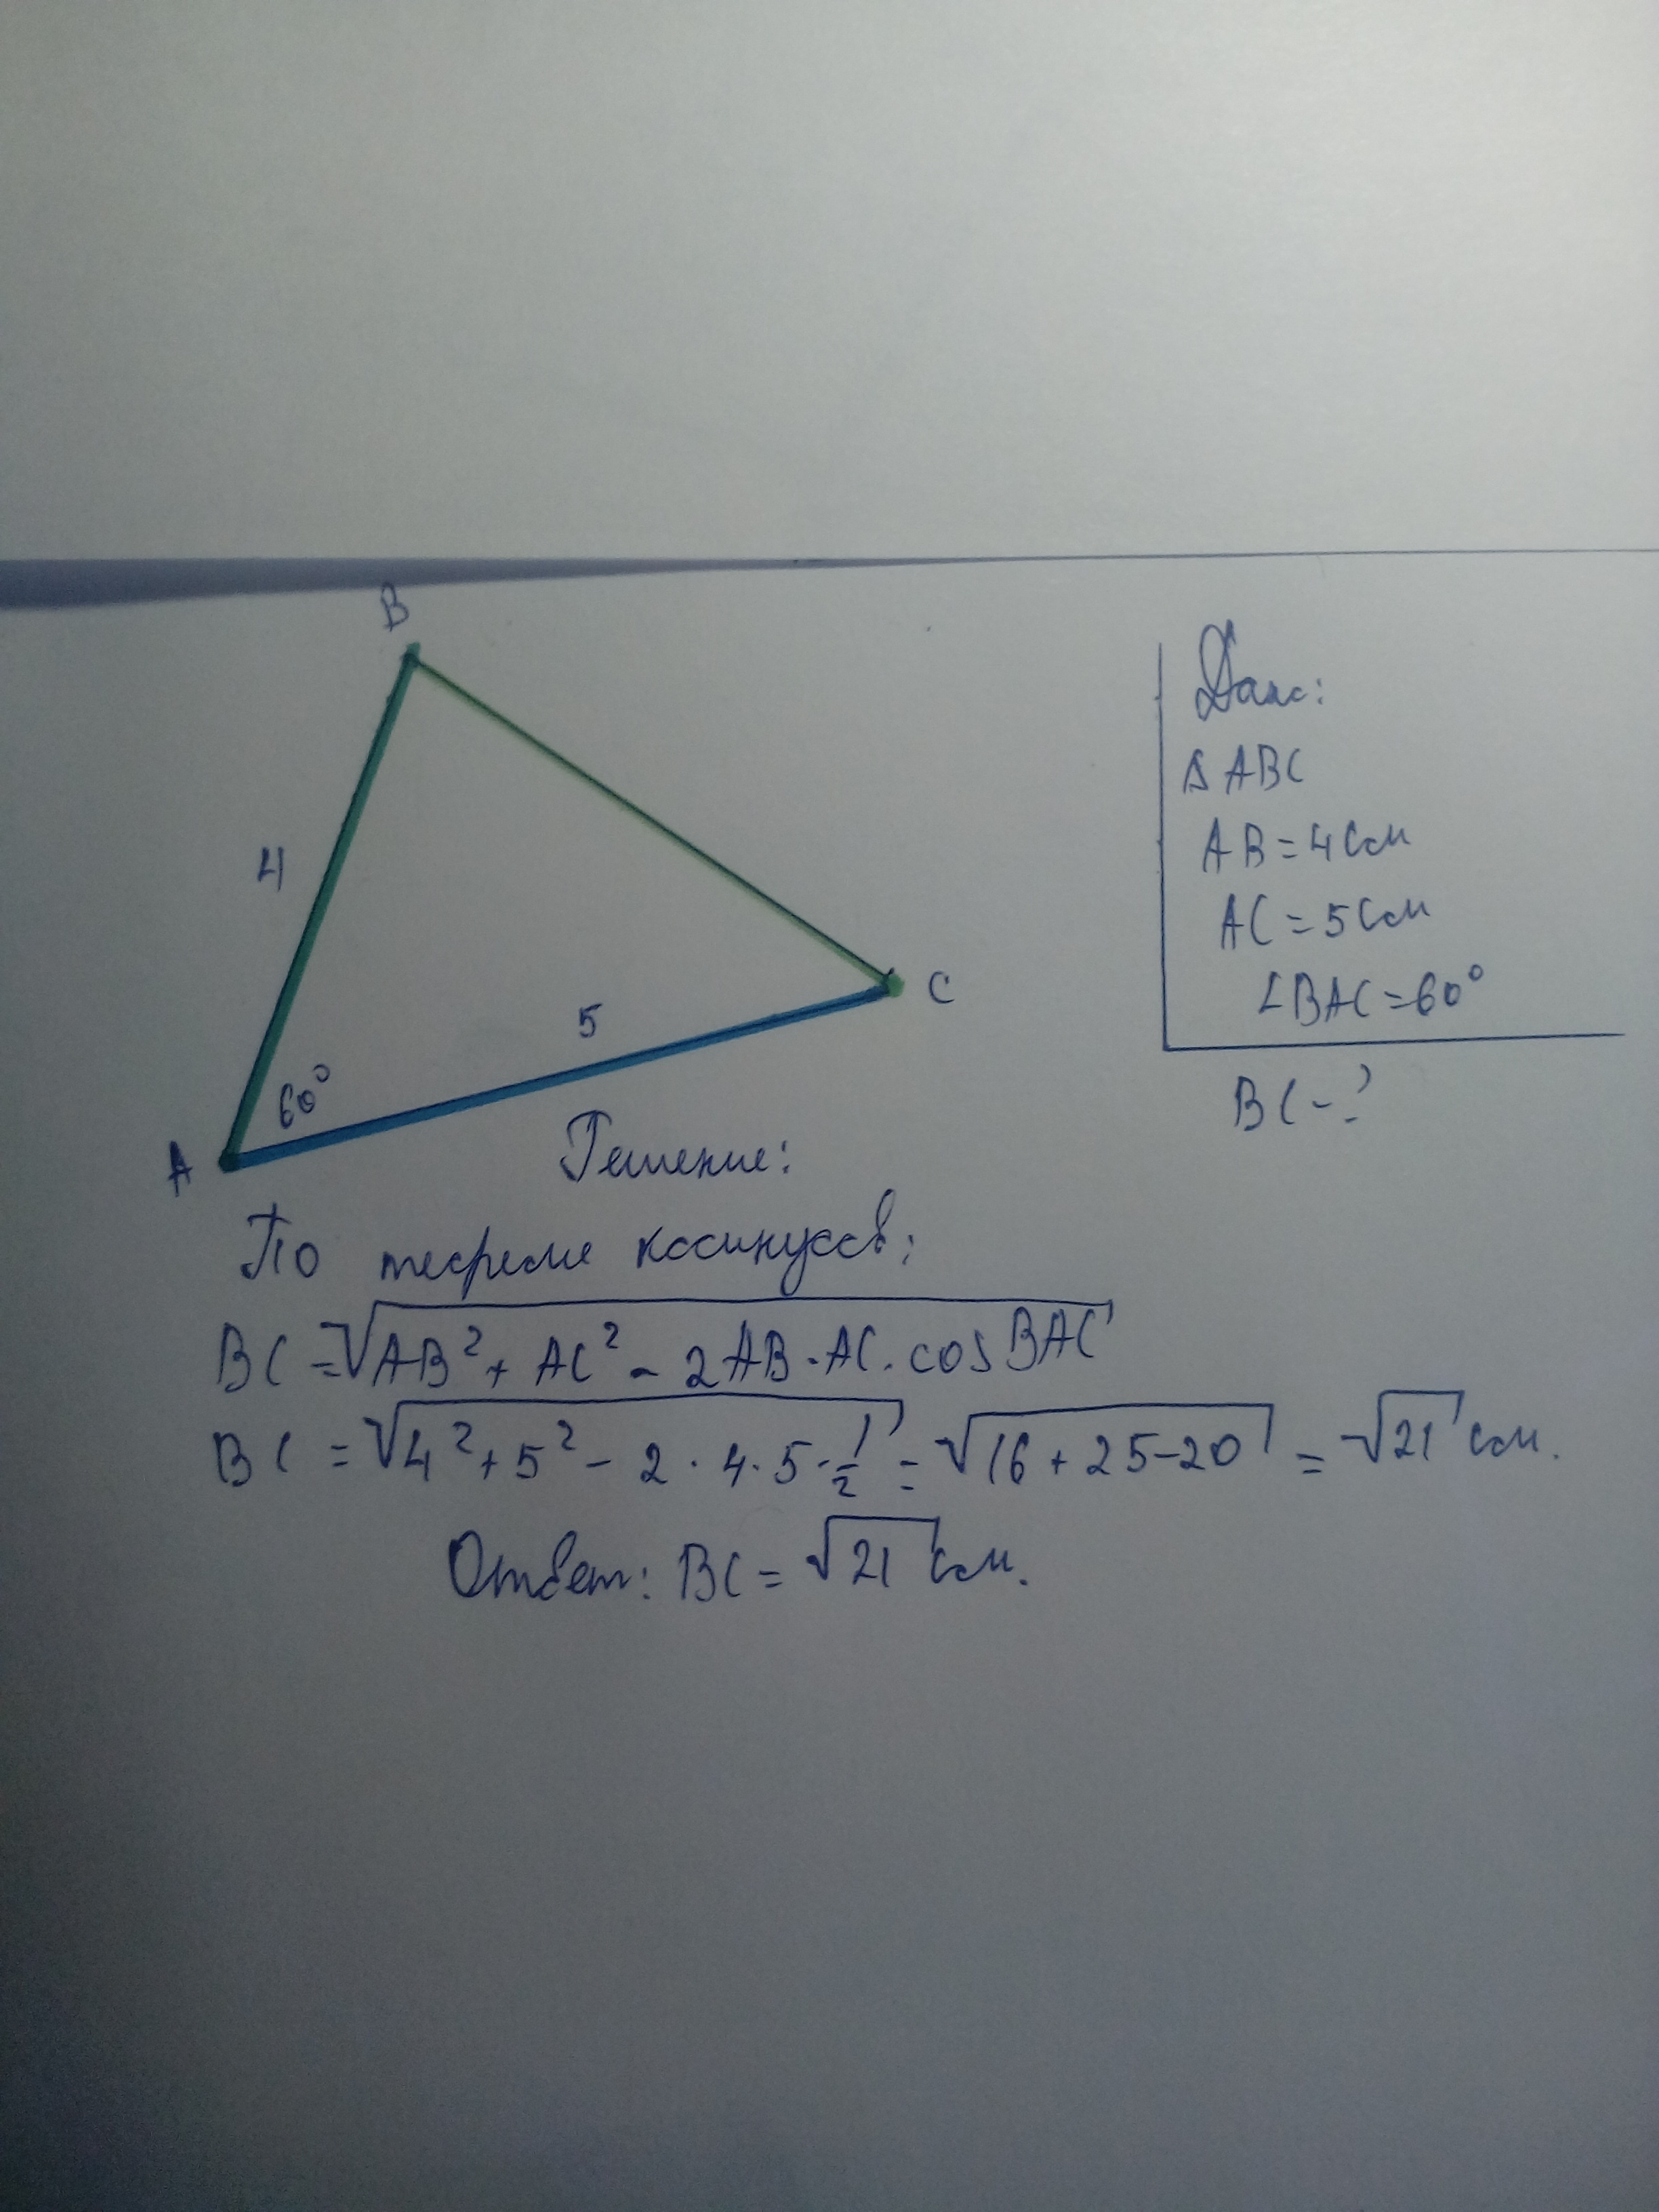 B
4
5
C
60°
A
Дано:
Δ ABC
AB = 4 см
AC = 5 см
∠BAC = 60°
BC - ?
Решение:
По теореме косинусов:
BC = √AB² + AC² - 2AB · AC · cos BAC
BC = √4² + 5² - 2 · 4 · 5 · 1/2 = √16 + 25 - 20 = √21 см.
Ответ: BC = √21 см.